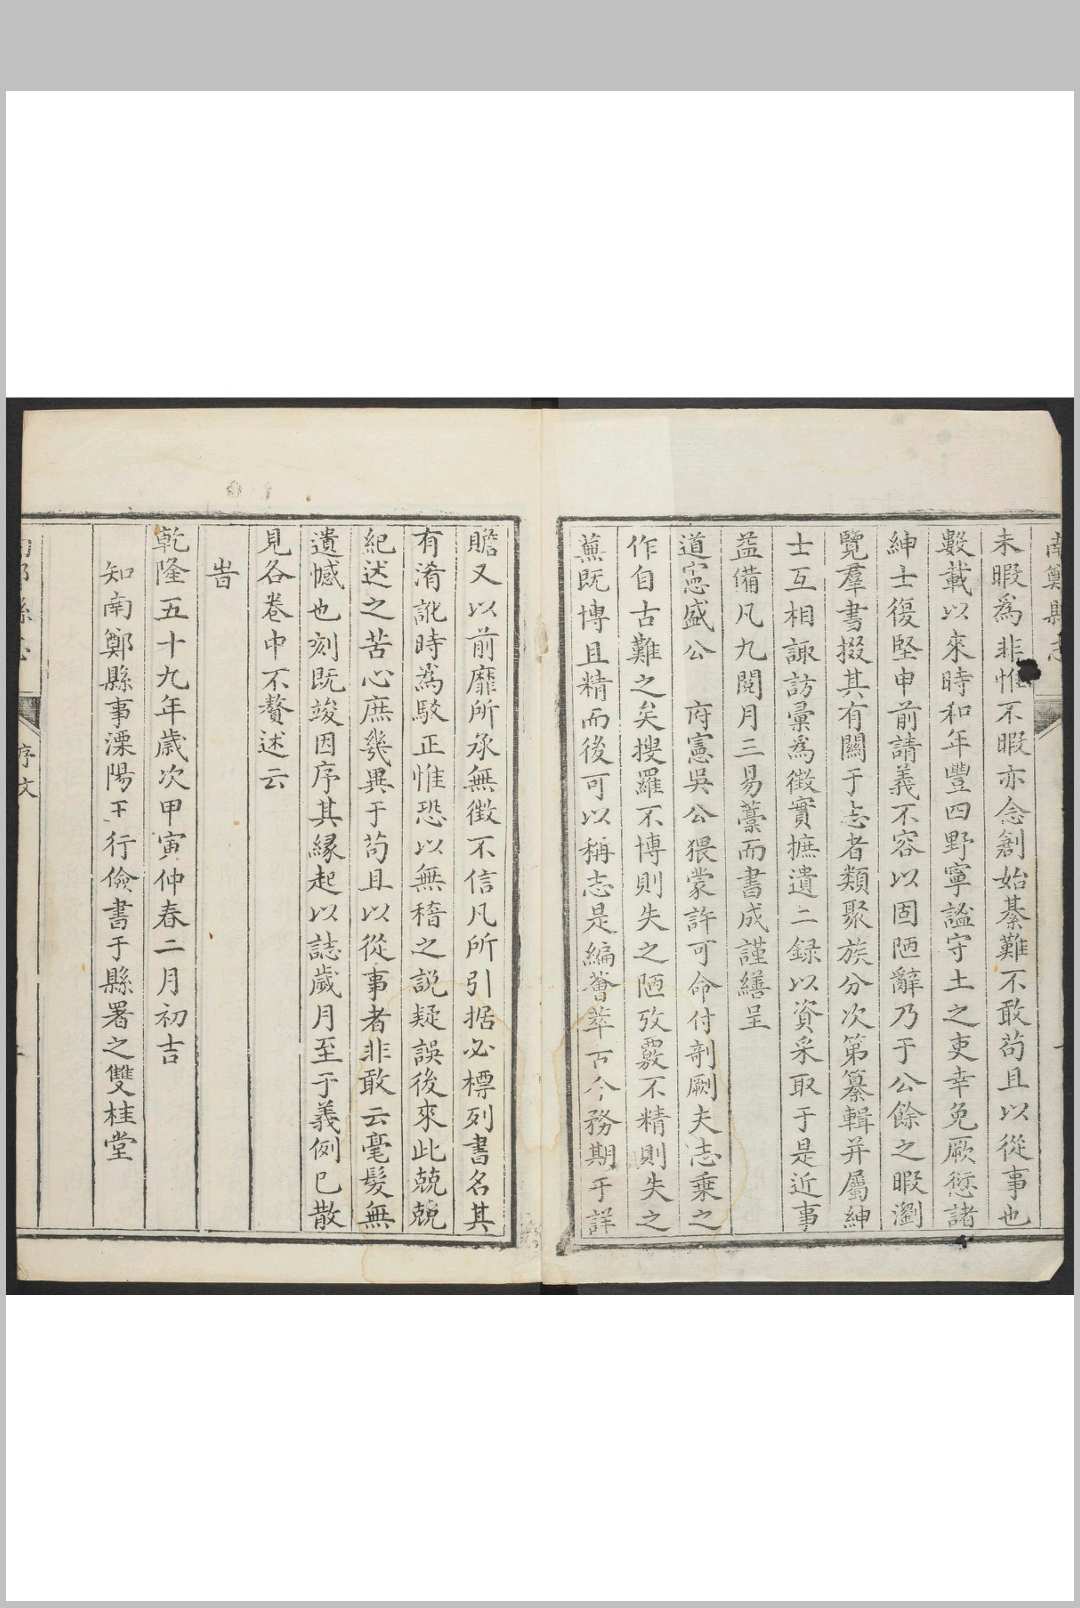 南鄭縣志
未暇為非惟不暇亦念創始綦難不敢苟且以從事也
數載以來時和年豐四野寧謐守土之吏幸免厥愆諸
紳士復堅申前請義不容以固陋辭乃于公餘之暇瀏
覽羣書掇其有關于志者類聚族分次第纂輯并屬紳
士互相諏訪彙為徵實摭遺二録以資采取于是近事
益備凡九閱月三易藁而書成謹繕呈
道憲盛公 府憲吳公猥蒙許可命付剞劂夫志乘之
作自古難之矣搜羅不博則失之陋攷覈不精則失之
蕪既博且精而後可以稱志是編薈萃古今務期于詳
贍又以前靡所承無徵不信凡所引据必標列書名其
有淆訛時為駁正惟恐以無稽之説疑誤後來此兢兢
紀述之苦心庶幾異于苟且以從事者非敢云毫髮無
遺憾也刻既竣因序其緣起以誌歲月至于義例已散
見各卷中不贅述云
旹
乾隆五十九年歲次甲寅仲春二月初吉
知南鄭縣事溧陽王行儉書于縣署之雙桂堂
序文